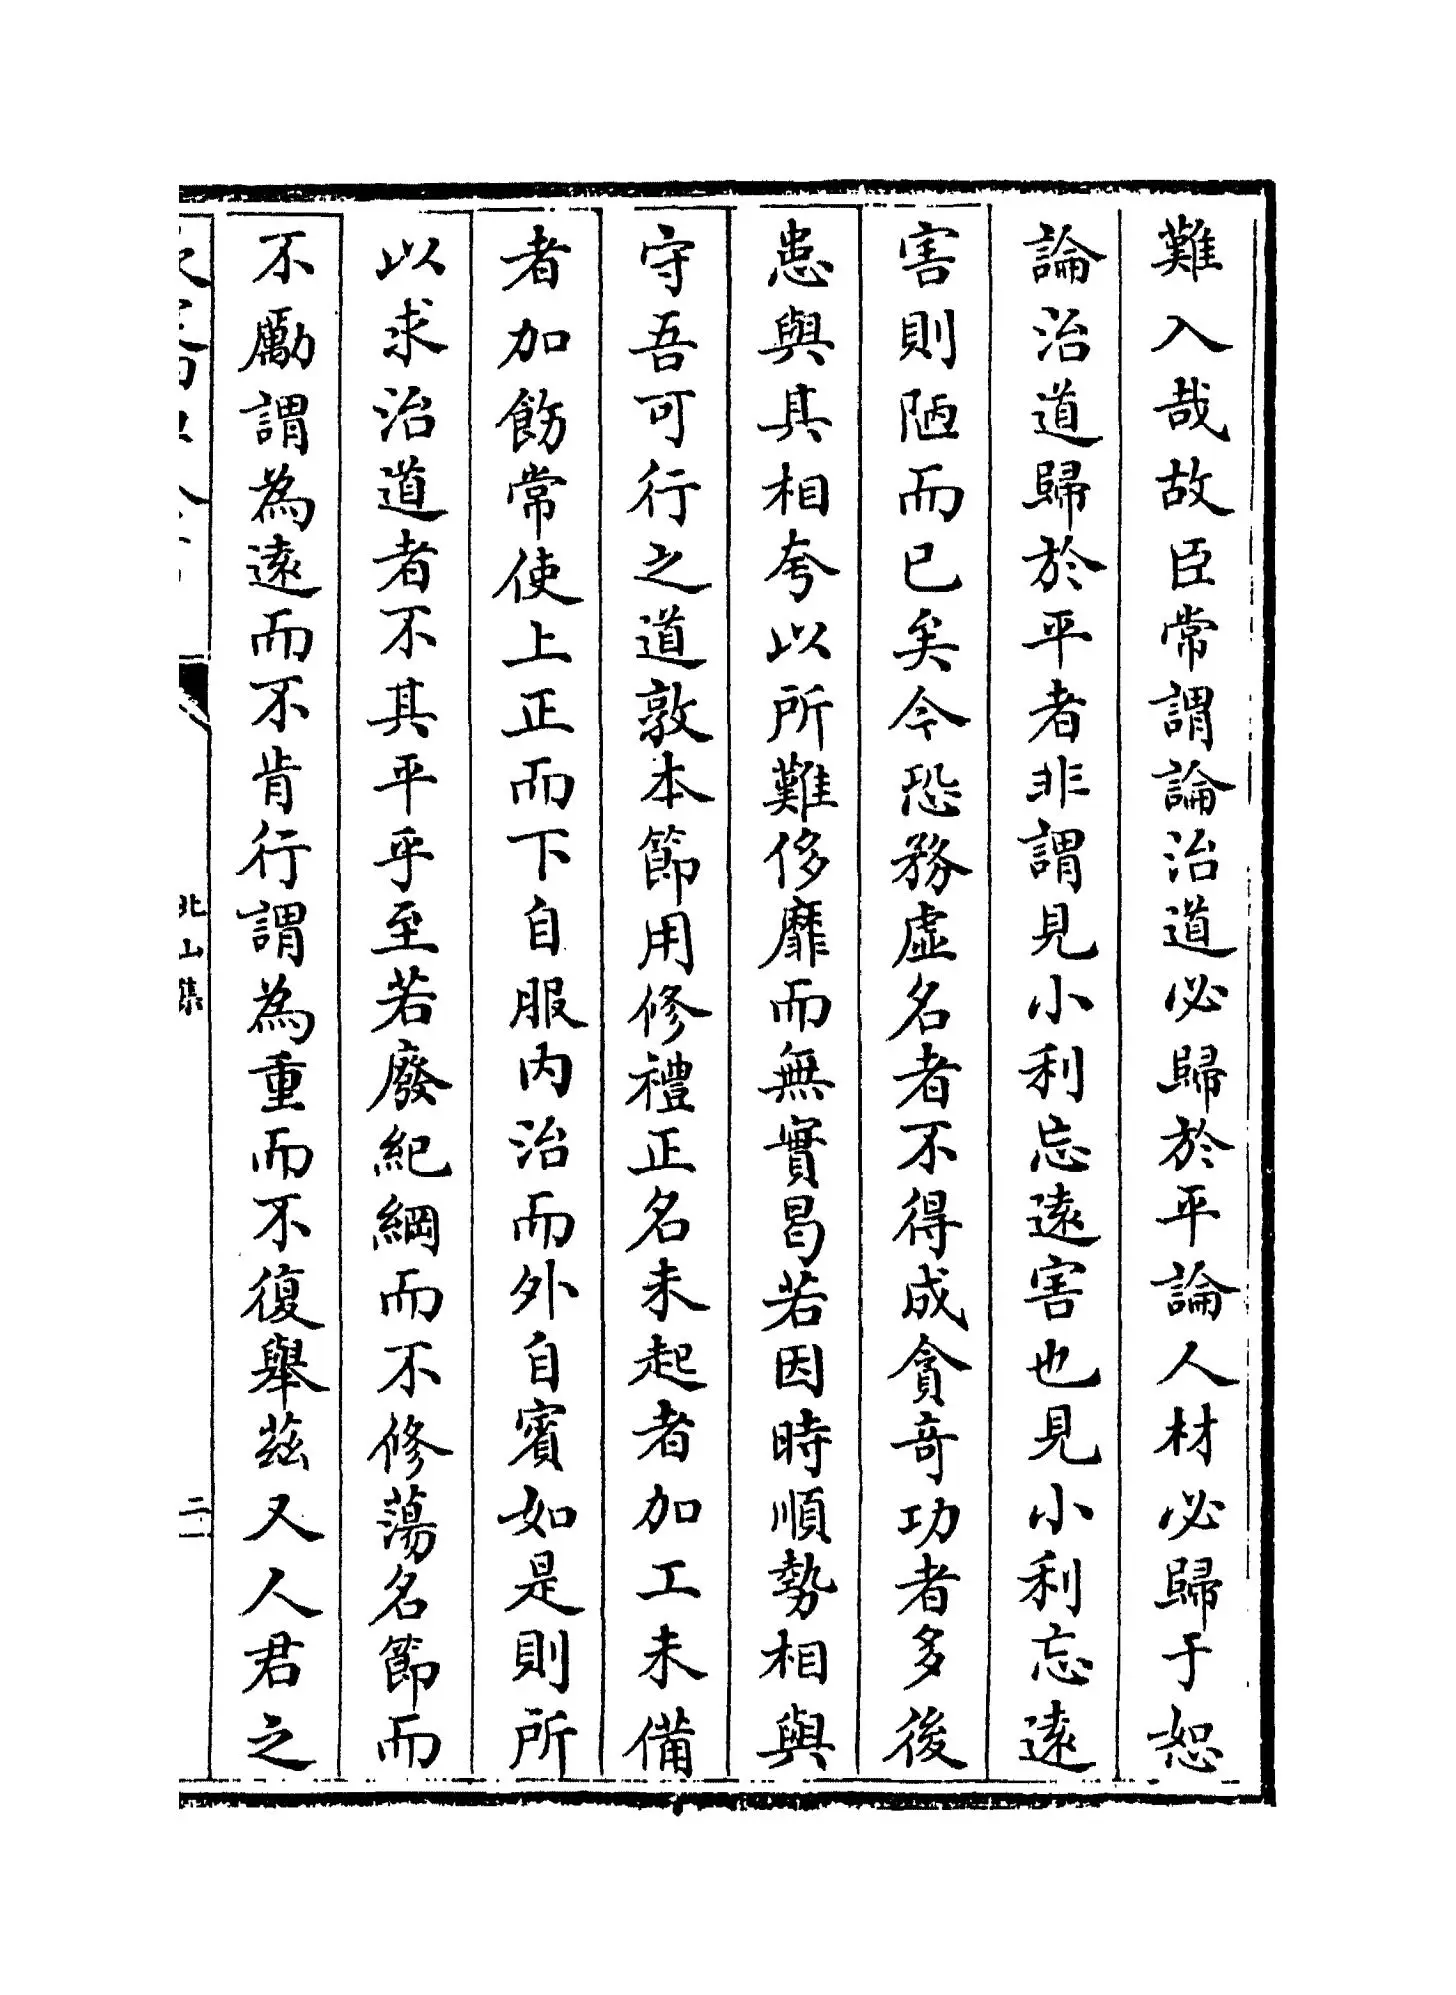 難入哉故臣常謂論治道必歸於平論人材必歸于恕
論治道歸於平者非謂見小利忘遠害也見小利忘遠
害則陋而已矣今恐務虛名者不得成貪奇功者多後
患與其相夸以所難侈靡而無實曷若因時順勢相與
守吾可行之道敦本節用修禮正名未起者加工未備
者加飭常使上正而下自服內治而外自賓如是則所
以求治道者不其平乎至若廢紀綱而不修蕩名節而
不勵謂為遠而不肯行謂為重而不復舉茲又人君之
北山集
二